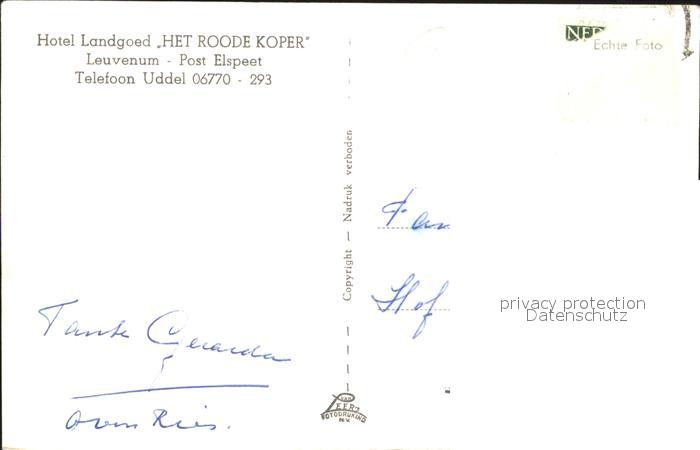 Hotel Landgoed „HET ROODE KOPER"
Leuvenum - Post Elspeet
Telefoon Uddel 06770 - 293
Echte Foto
Copyright — Nadruk verboden
Fam
Hof
privacy protection
Datenschutz
Tante Gerarda
oom Ries.
VAN
LEER'S
FOTODRUKIND.
N.V.